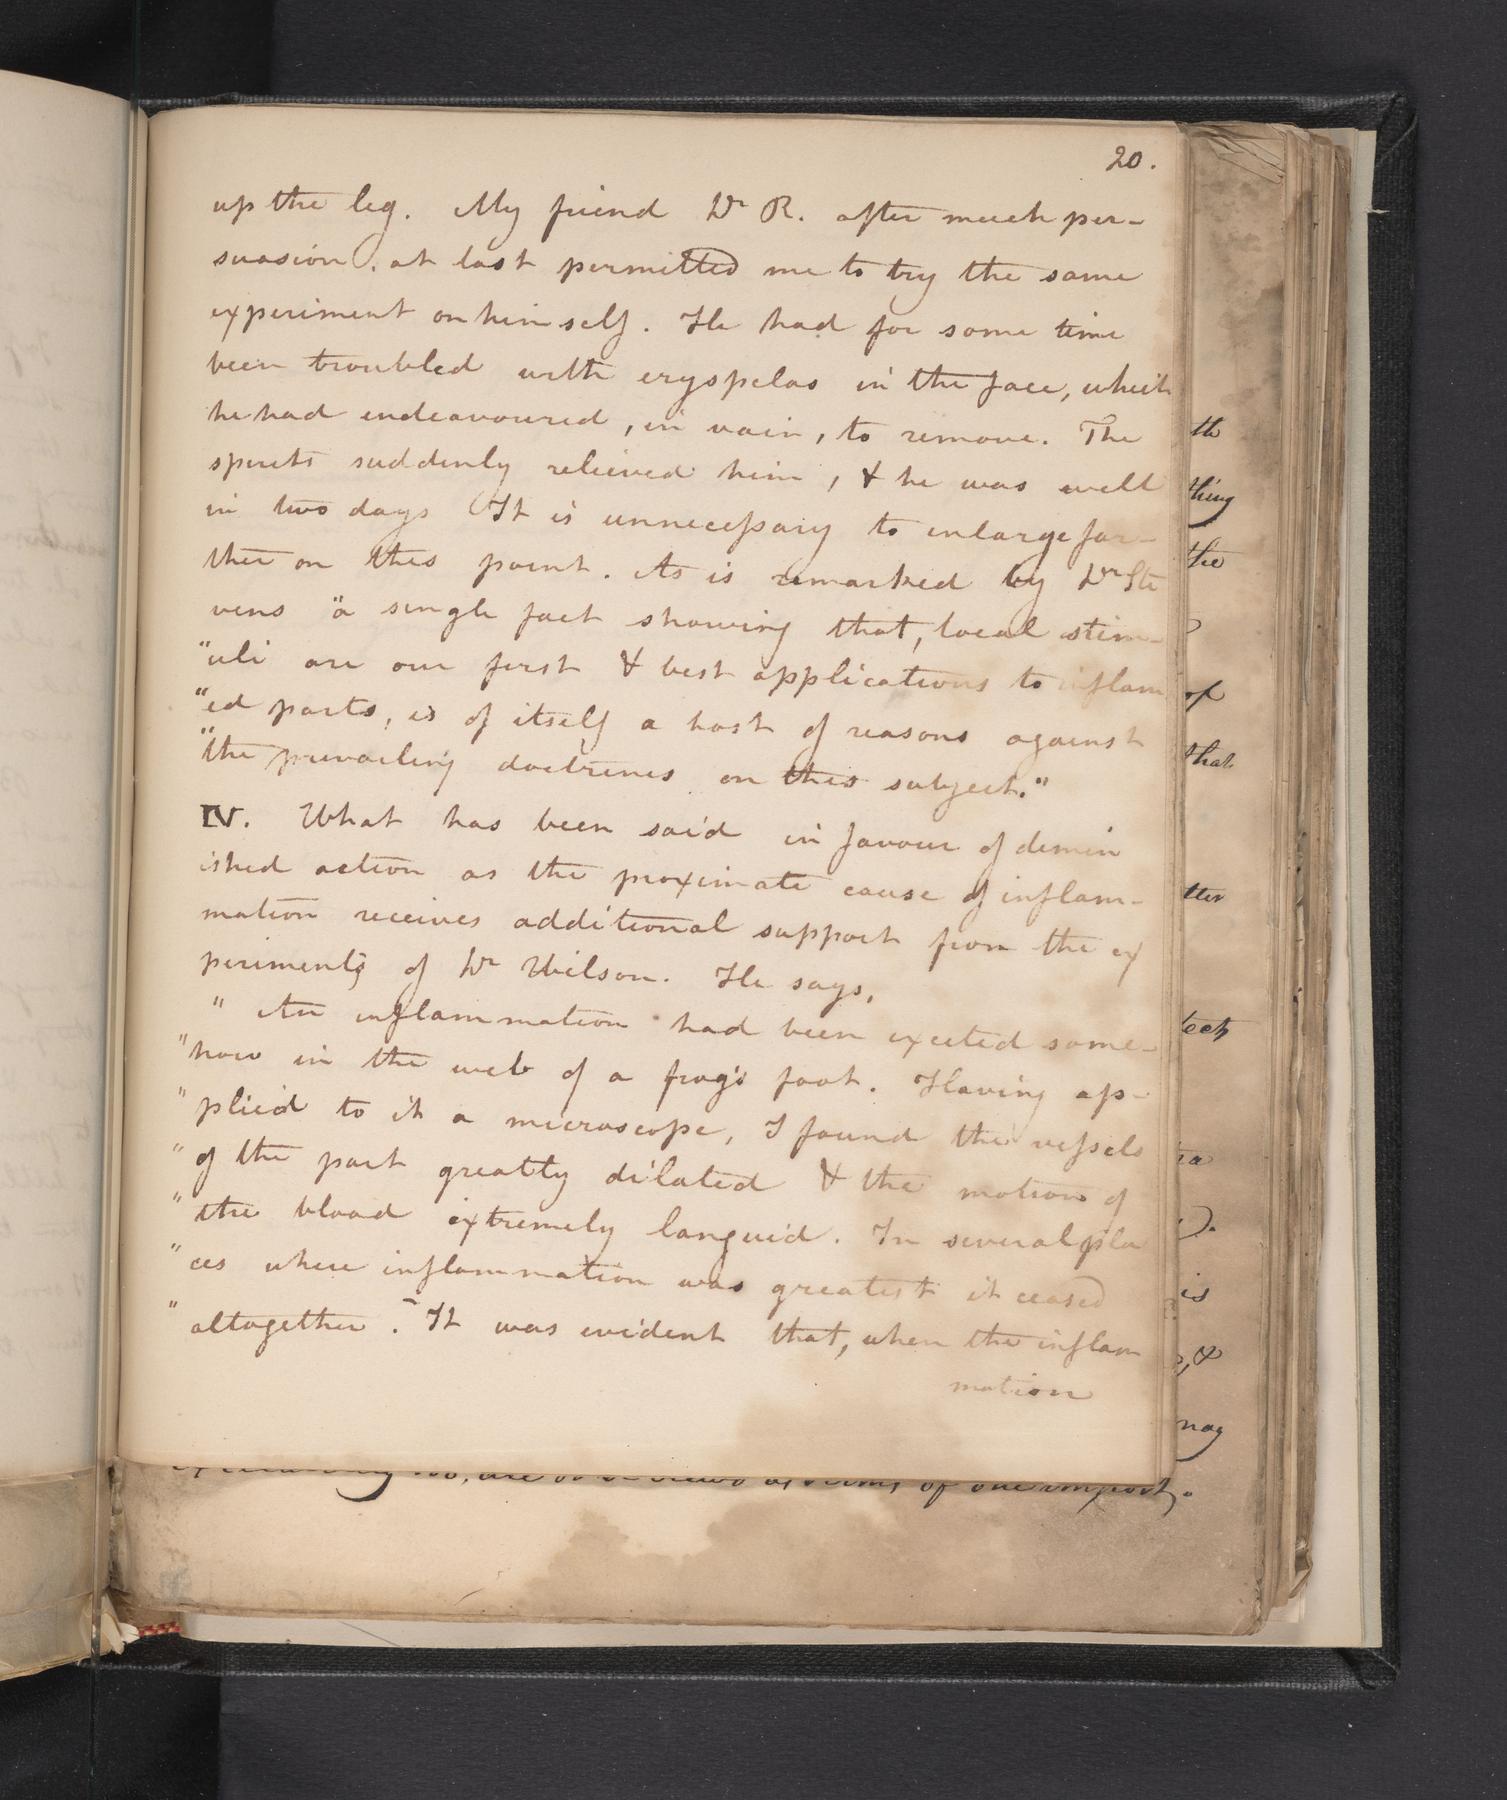 20.
up the leg. My friend Dr R. after much per-
suasion, at last permitted me to try the same
experiment on himself. He had for some time
been troubled with eryspelas in the face, which
he had endeavoured, in vain, to remove. The
spirits suddenly relieved him, & he was well
in two days It is unnecessary to enlarge far-
ther on this point. As is remarked by Dr Ste
vens "a single fact showing that, local stim-
"uli are our first & best applications to inflam
"ed parts, is of itself a host of reasons against
"the prevailing doctrines on this subject."
IV. What has been said in favour of demin
ished action as the proximate cause of inflam-
mation receives additional support from the ex
periments of Dr Wilson. He says,
" An inflammation had been excited some-
"how in the web of a frog's foot. Having ap-
"plied to it a microscope, I found the vessels
"of the part greatly dilated & the motion of
"the blood extremely languid. In several pla
"ces where inflammation was greatest it ceased
"altogether. - It was evident that, when the inflam
mation
th
thing
the
of
that
tter
is
, &
of one import.